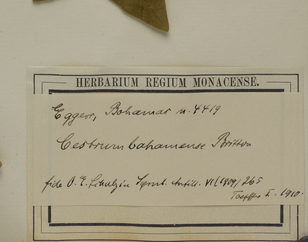 HERBARIUM REGIUM MONACENSE.
Eggers, Bahamas n. 4419
Cestrum bahamense Britton
fide O. E. Schulz in Symb. Antill. VI (1909) 265
I. 1910.